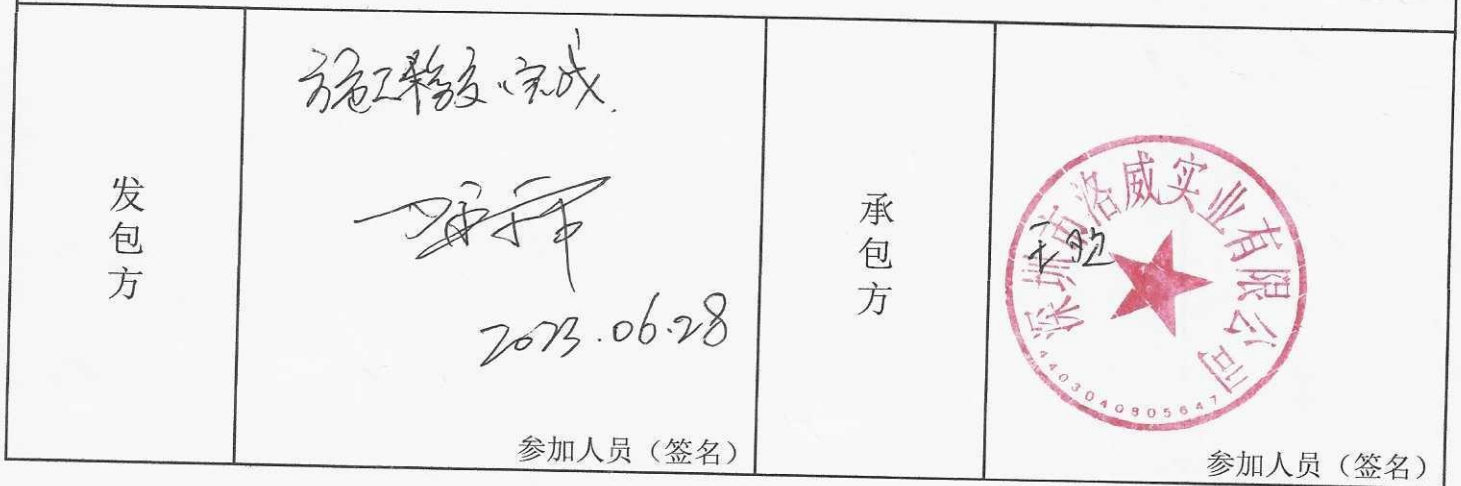 发包方
完成
2023.06.28
参加人员（签名）
承包方
深圳市洛威实业有限公司
4403040805647
参加人员（签名）